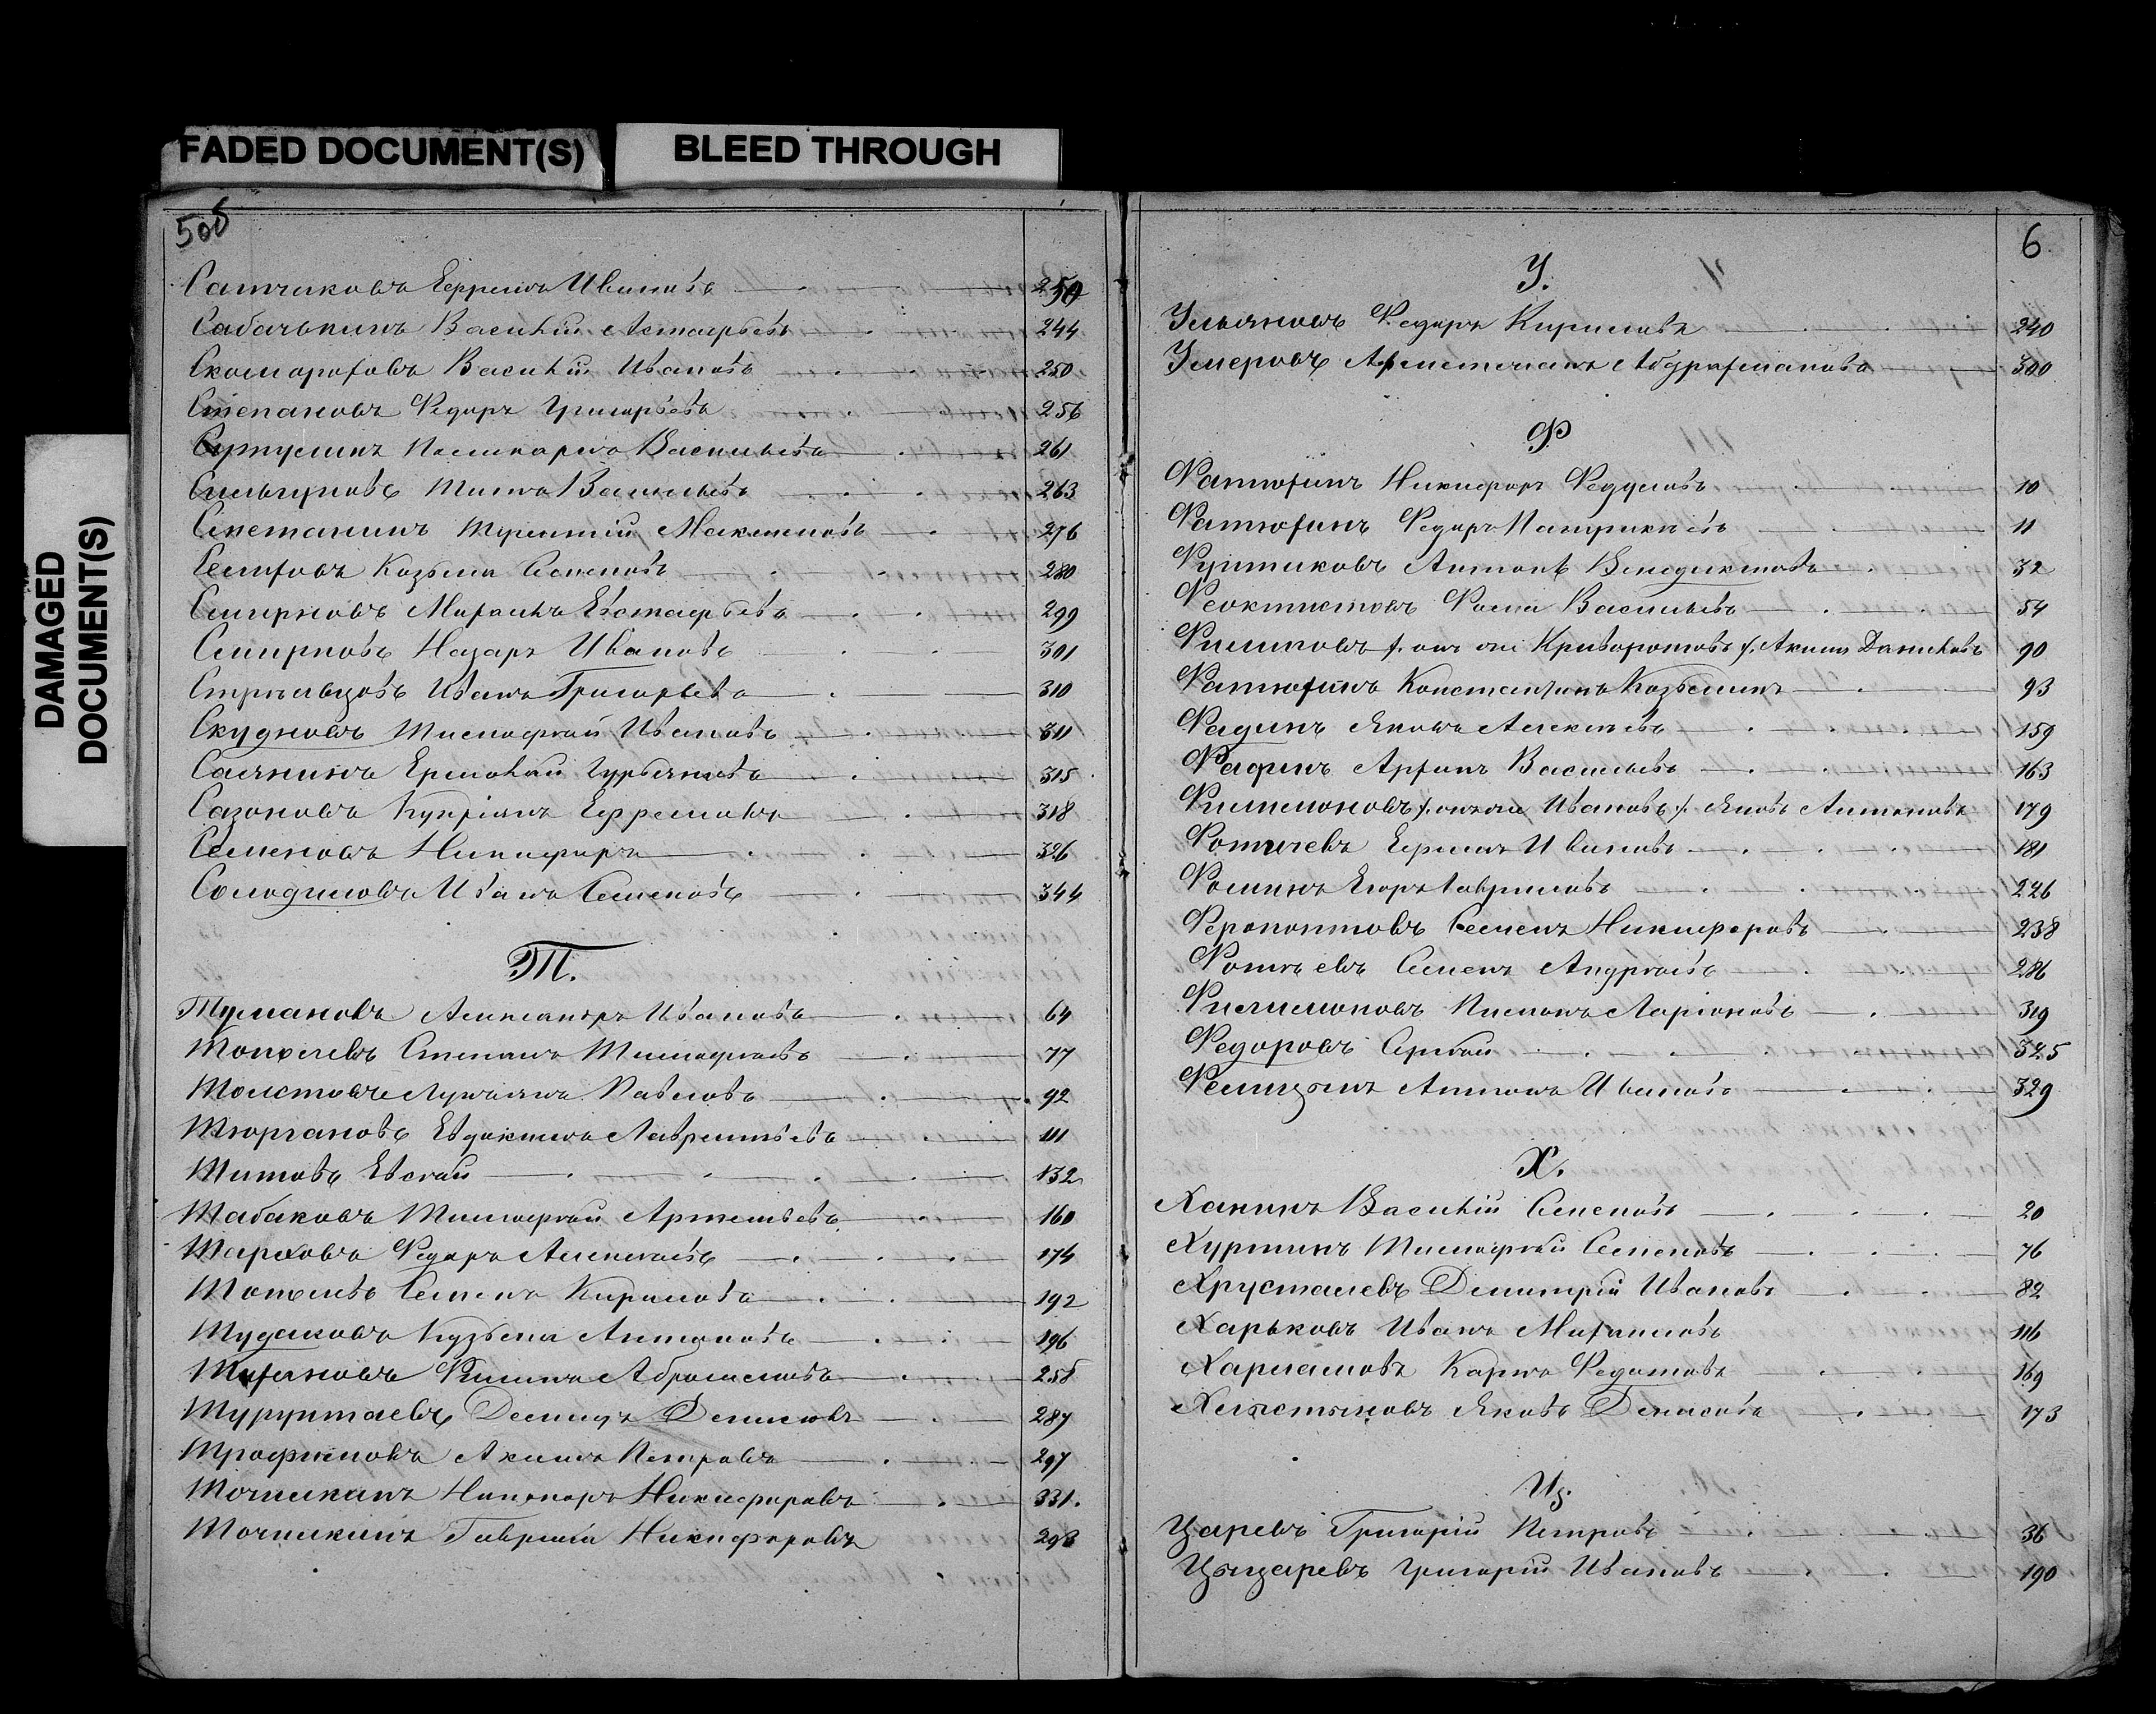 FADED DOCUMENT(S)
BLEED THROUGH
DAMAGED
DOCUMENT(S)
5об
Сатчиковъ Ефремъ Ивановъ 250
Собачькинъ Василій Астафьевъ 244
Скомороховъ Василій Ивановъ 250
Степановъ Федоръ Григорьевъ 256
Васильевъ 261
Титъ Васильевъ 263
Сметанинъ Терентій Максимовъ 276
Козьма Семеновъ 280
Смирновъ Михаилъ Евстафьевъ 299
Смирновъ Назаръ Ивановъ 301
Стрельцовъ Иванъ Григорьевъ 310
Скудновъ Тимофей Ивановъ 311
Салянинъ Ермолай Гурьяновъ 315
Сазоновъ Купріянъ Ефремовъ 318
Семеновъ Никифоръ 326
Солодиловъ Иванъ Семеновъ 344
Т.
Тумановъ Александръ Ивановъ 64
Тополевъ Степанъ Тимофеевъ 77
Толстовъ Лукьянъ Павловъ 92
Тюргановъ Евдокимъ Лаврентьевъ 111
Титовъ Евсей 132
Табаковъ Тимофей Артемьевъ 160
Тарховъ Федоръ Алексеевъ 174
Тополевъ Семенъ Кириловъ 192
Тудаковъ Кузьма Антоновъ 196
Тихановъ Филипъ Абрамовъ 258
Турунтаевъ Демидъ Денисовъ 287
Трофимовъ Акимъ Петровъ 297
Точилкинъ Никаноръ Никифоровъ 331.
Точилкинъ Гаврила Никифоровъ 298
6
У.
Ульяновъ Федоръ Кириловъ 240
Умеровъ Абдрахмановъ 300
Ф
Фатюхинъ Никифоръ Федуловъ 10
Фатюхинъ Федоръ Патрикѣевъ 11
Антонъ Венедиктовъ 32
Феоктистовъ Фома Васильевъ 54
Филиповъ /. онъ же Криворотовъ /. Акимъ Даниловъ 90
Фатюхинъ Константинъ Козьминъ 93
Фадинъ Яковъ Алексѣевъ 159
Фафинъ Архипъ Васильевъ 163
Филимоновъ /. онъ же Ивановъ /. Яковъ Антоновъ 179
Фотичевъ Ефимъ Ивановъ 181
Фоминъ Егоръ Гавриловъ 226
Ферапонтовъ Семенъ Никифоровъ 238
Фотѣевъ Семенъ Андреевъ 286
Филимоновъ Пименъ Ларіоновъ 319
Федоровъ Сергѣй 325
Антонъ Ивановъ 329
Х.
Ханинъ Василій Семеновъ 20
Хуртинъ Тимофей Семеновъ 76
Хрусталевъ Дмитрій Ивановъ 82
Харьковъ Иванъ Михайловъ 116
Харламовъ Карпъ Федотовъ 169
Хлыстыновъ Яковъ Денисовъ 173
Ц.
Царевъ Григорій Петровъ 36
Цыцаревъ Григорій Ивановъ 190